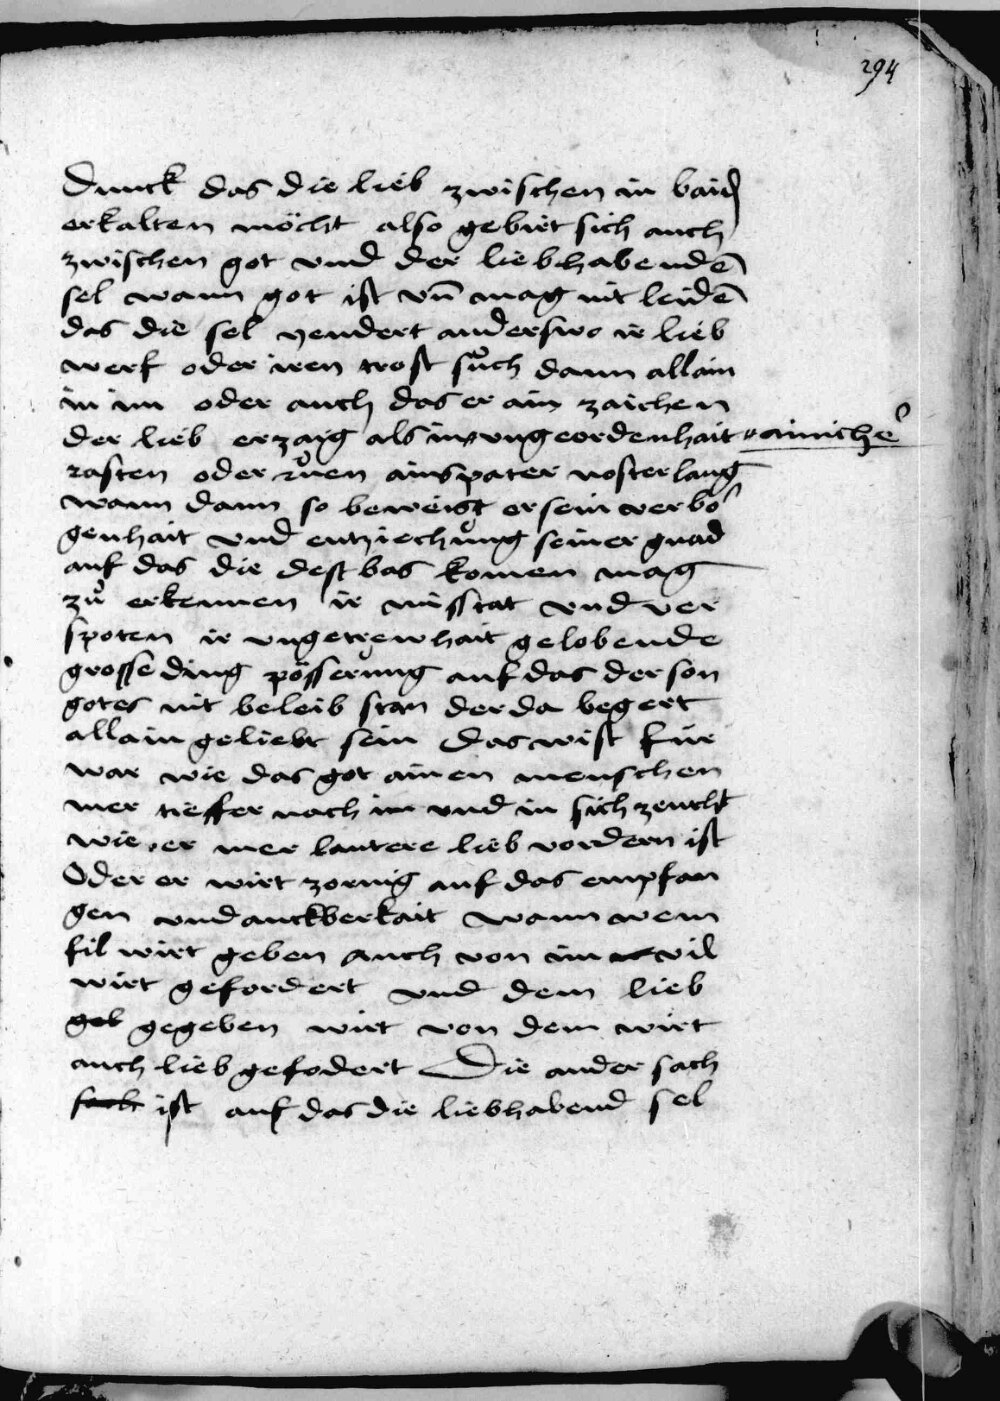 294
Dunck das die lieb zwischen in baid
erkalten möcht also gebirt sich auch
zwischen got vnd der liebhabendē
sel wann got ist vn̄ mag nit leidē
das die sel yendert anderswo ir lieb
werf oder iren trost sůch dann allain
in im oder auch das er ain zaichen
der lieb erzaig als in vngeordenhait ainichē
rasten oder růen ains pater noster lang
wann dann so beweist er sein verbo
genhait vnd entziechung seiner gnad
auf das die dest bas komen mag
zů erkennen ir misstat vnd ver
spoten ir vngetrewhait gelobende
grosse ding pösserung auf das der son
gotes nit beleib stan der da begert
allain geliebt sein das wist für
war wie das got ainen menschen
mer tieffer nach im vnd in sich zeucht
wie er mer lautere lieb vordern ist
Oder er wirt zornig auf das empfan
gen vndanckberkait wann wem
fil wirt geben auch von im vil
wirt gefordert vnd dem lieb
geb gegeben wirt von dem wirt
auch lieb gefodert Die ander sach
sach ist auf das die liebhabend sel